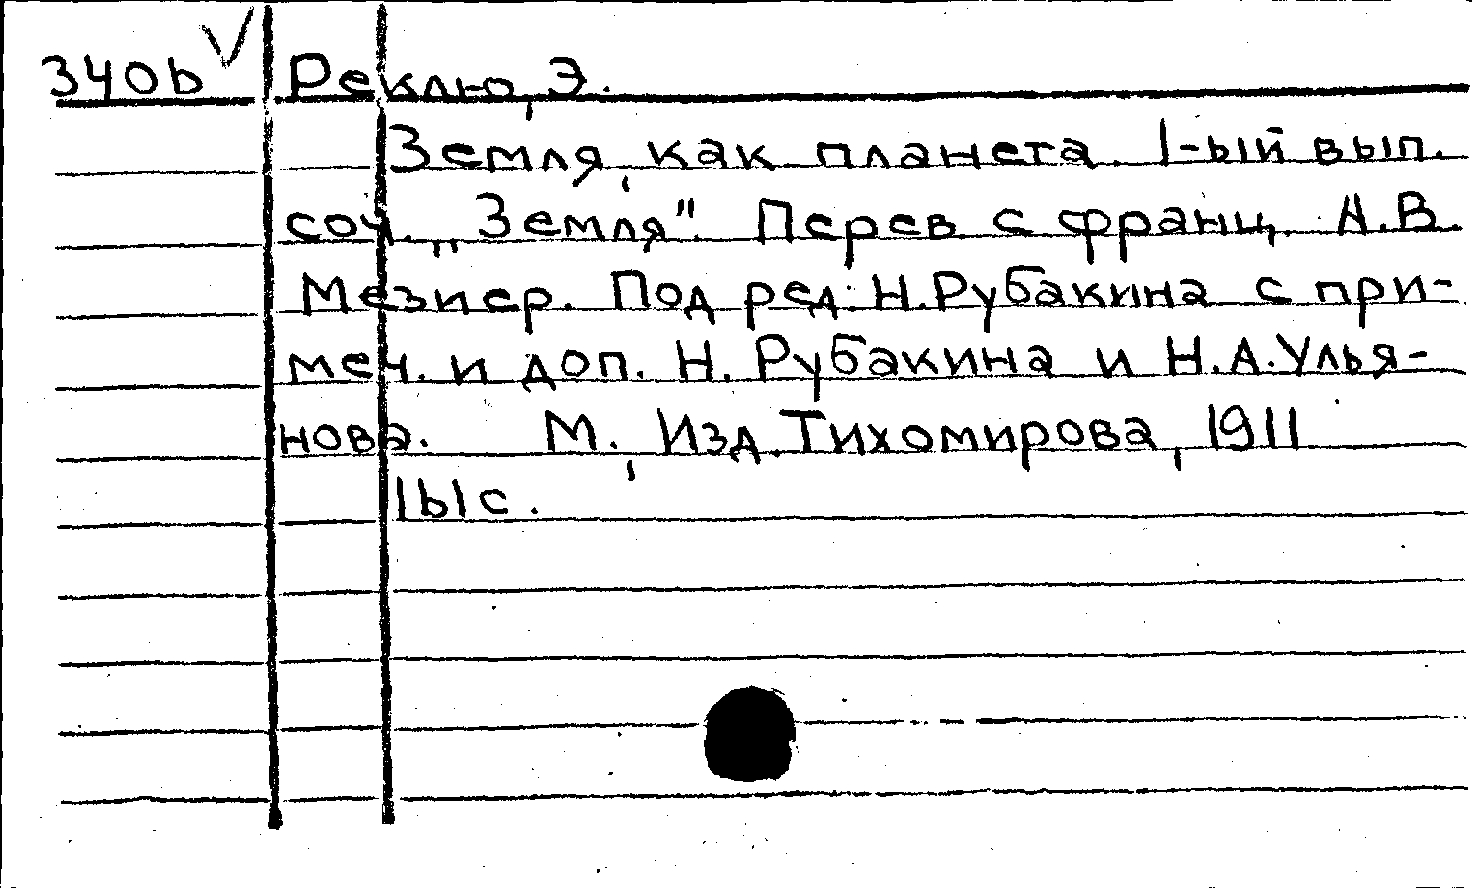 340b Реклю, Э.
Земля, как планета. 1-ый вып.
соч. „Земля". Перев. с франц. А.В.
Мезиер. Под ред. Н.Рубакина с при-
меч. и доп. Н. Рубакина и Н.А.Улья-
нова. М., Изд. Тихомирова, 1911
161с.